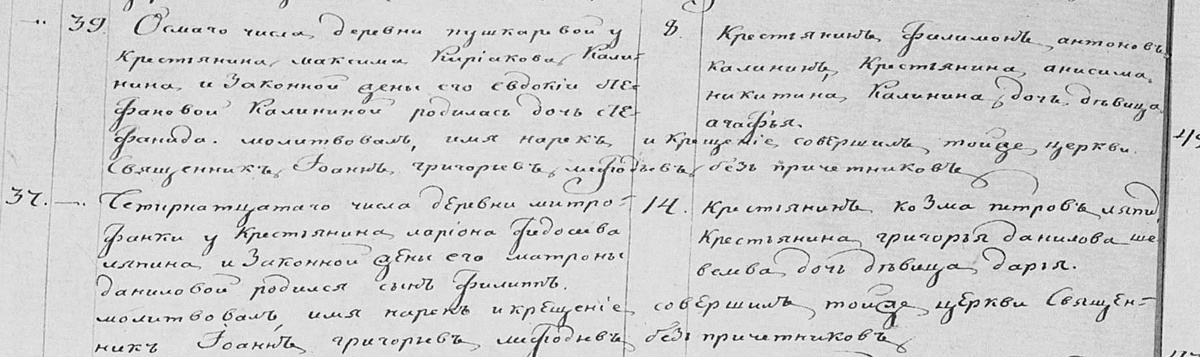 39. Осмаго числа деревни пушкаревой у
крестьянина максима Киріакова Кали-
нина и Законной жены его евдокіи сте-
фановой Калининой родилась дочь сте-
фанида. молитвовалъ, имя нарекъ и крещеніе совершилъ тойже церкви
Священникъ Іоаннъ григорьевъ мефодьевъ безъ причетниковъ
8. Крестьянинъ филимонъ антоновъ
калининъ, Крестьянина анисима
никитина Калинина дочь дѣвица
агафья.
37. Четырнатцатаго числа деревни митро-
фанки у Крестьянина ларіона федосѣева
ляпина и Законной жены его матроны
даниловой родился сынъ филиппъ.
молитвовалъ имя нарекъ и крещеніе совершилъ тойже церкви Священ-
никъ Іоаннъ григорьевъ мефодьевъ безъ причетниковъ
14. Крестьянинъ козма петровъ ляпи
Крестьянина григорья данилова ше
велева дочь дѣвица дарья.